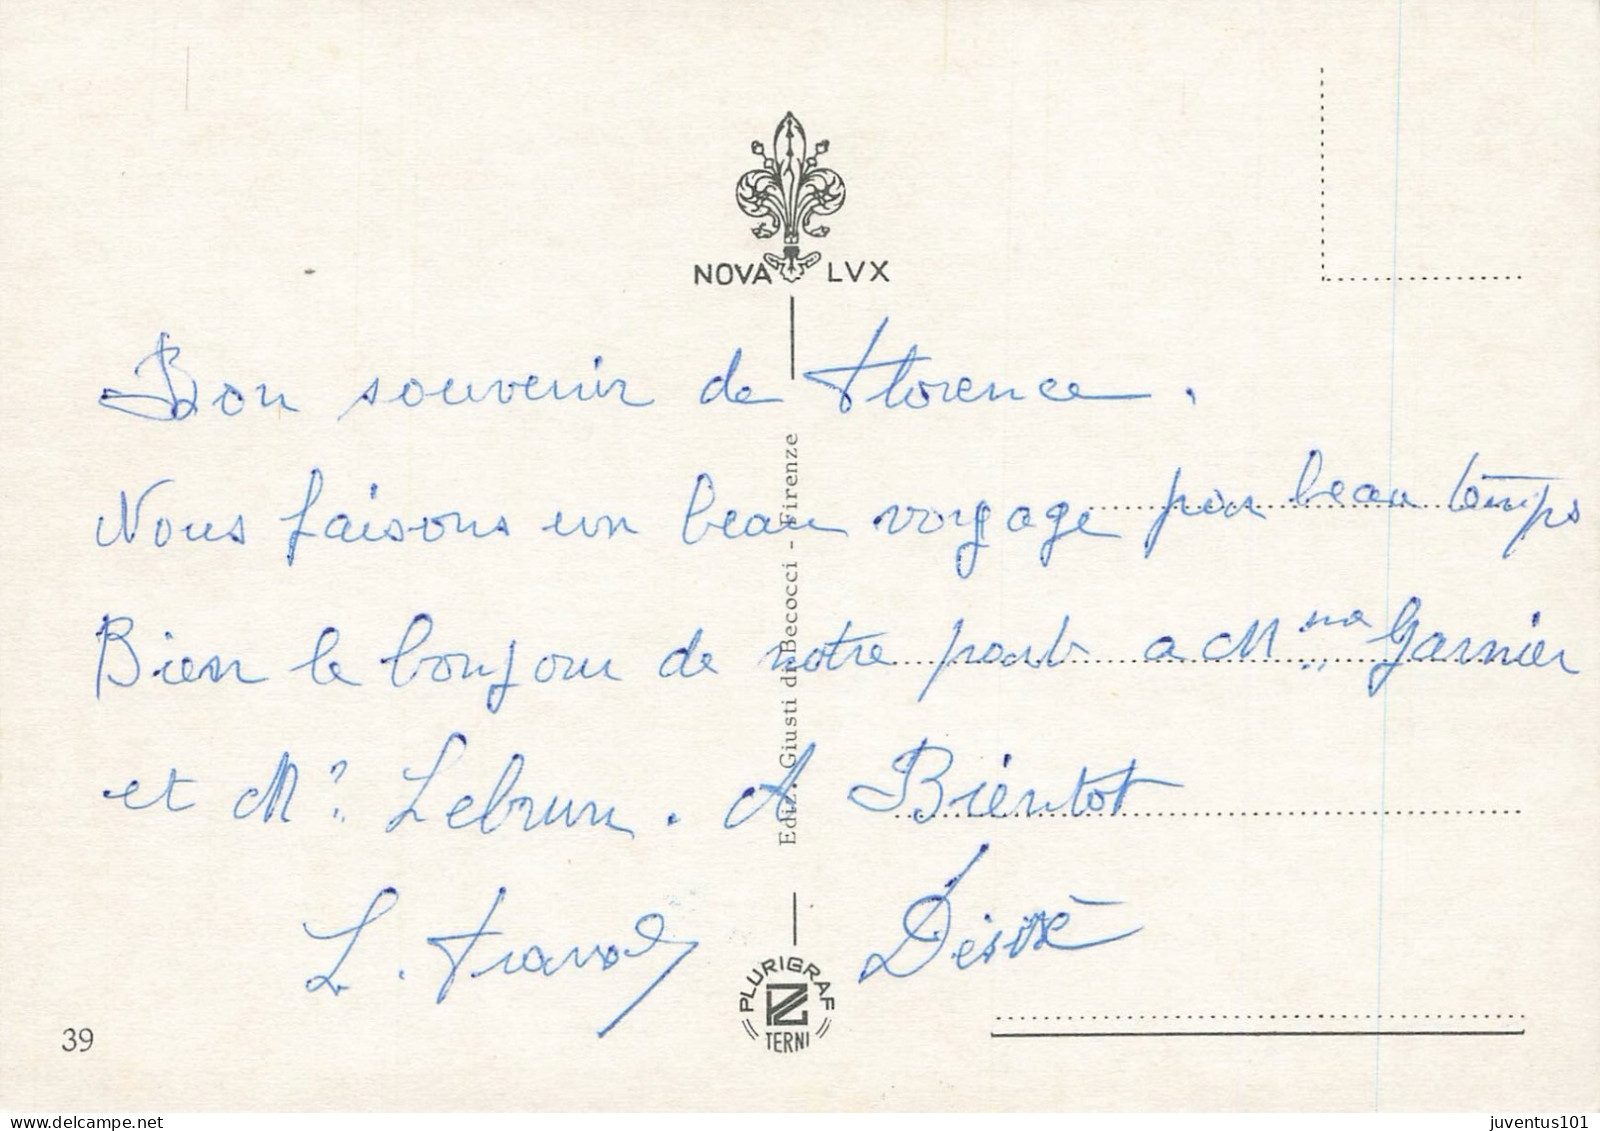 NOVA LVX
Bon souvenir de Florence.
Nous faisons un beau voyage par beau temps
Bien le bonjour de notre part a Mme Garnier
et Mr Lebrun. A Bientot
L. Désiré
Ediz. Giusti di Becocci - Firenze
PLURIGRAF
TERNI
39
delcampe.net
juventus101